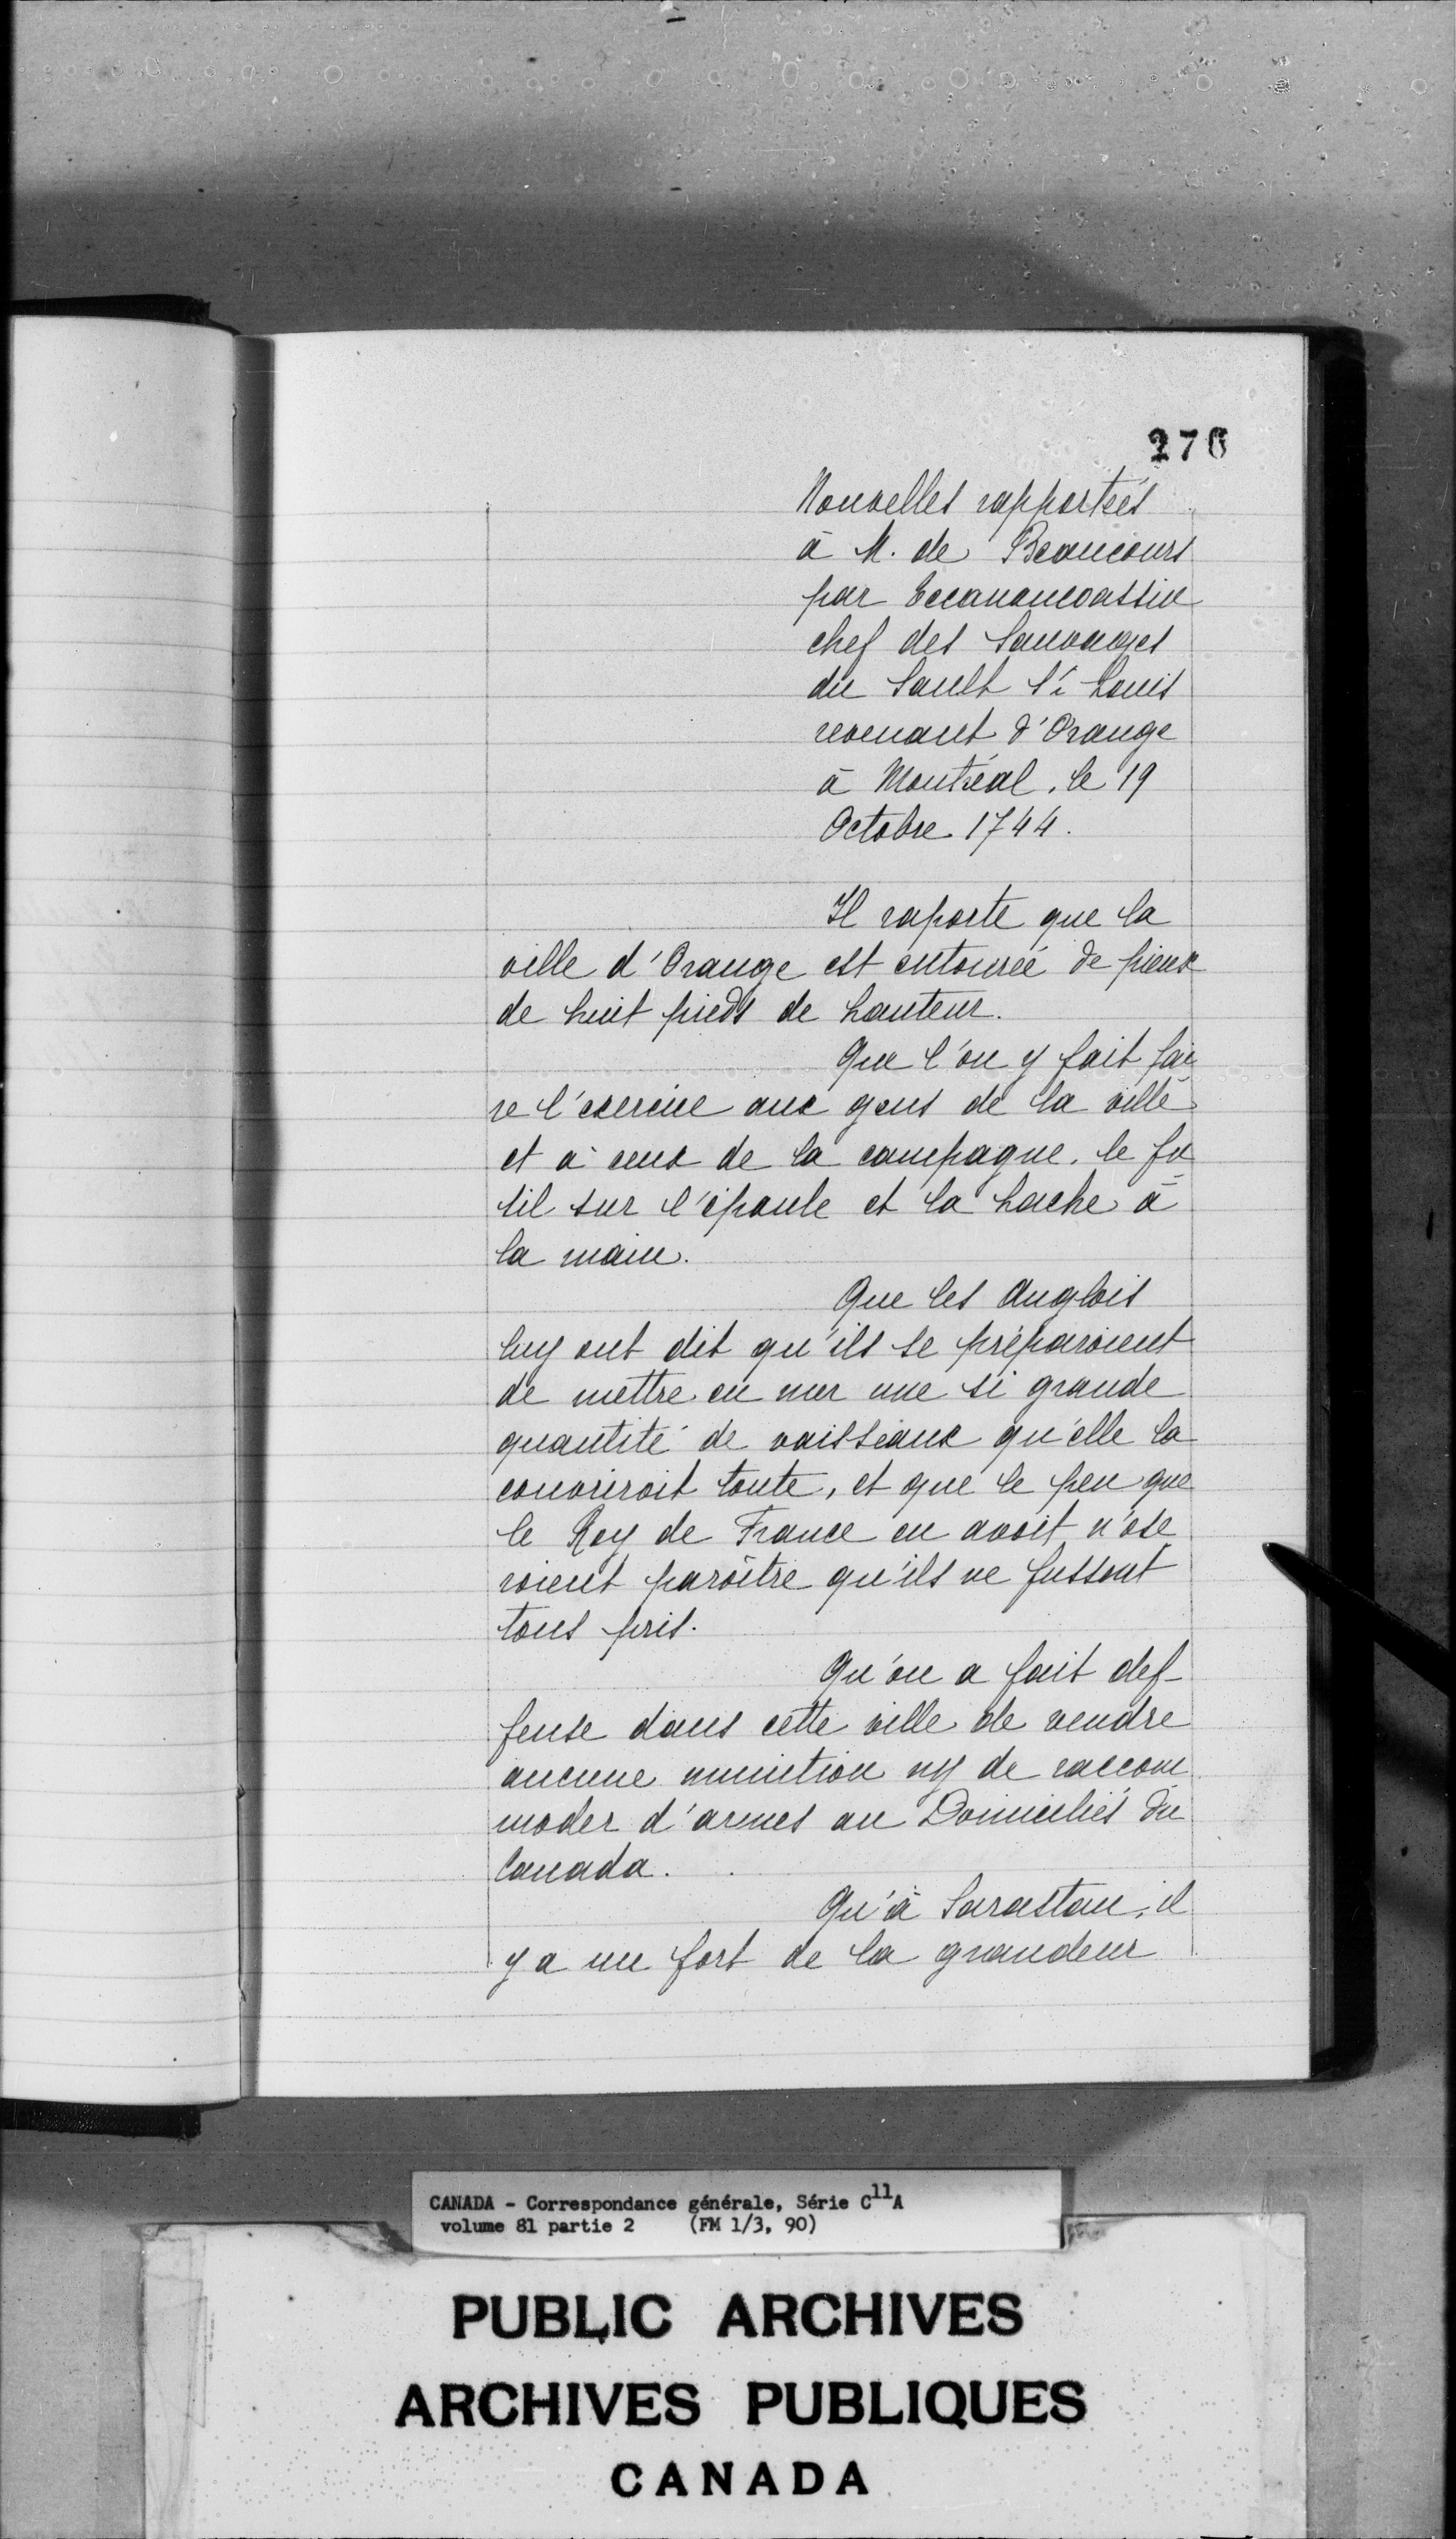 276
Nouvelles rapportées
à M. de Beaucours
par
chef des Sauvages
du Sault St Louis
revenant d'Orange
à Montréal, le 19
Octobre 1744.
Il raporte que la
ville d'Orange est entourée de pieux
de huit pieds de hauteur.
Que l'on y fait fai
re l'exercice aux gens de la ville
et à ceux de la campagne, le fu
sil sur l'épaule et la hache à
la main.
Que les Anglois
luy ont dit qu'ils se préparoient
de mettre en mer une si grande
quantité de vaisseaux qu'elle la
couvriroit toute, et que le peu que
le Roy de France en avoit n'ose
roient paroître qu'ils ne fussent
tous pris.
Qu'on a fait def-
fense dans cette ville de vendre
aucune munition ny de raccom
moder d'armes au Domiciliés du
Canada.
Qu'à Sarastau, il
y a un fort de la grandeur
CANADA - Correspondance générale, Série C11A
volume 81 partie 2 (FM 1/3, 90)
PUBLIC ARCHIVES
ARCHIVES PUBLIQUES
CANADA